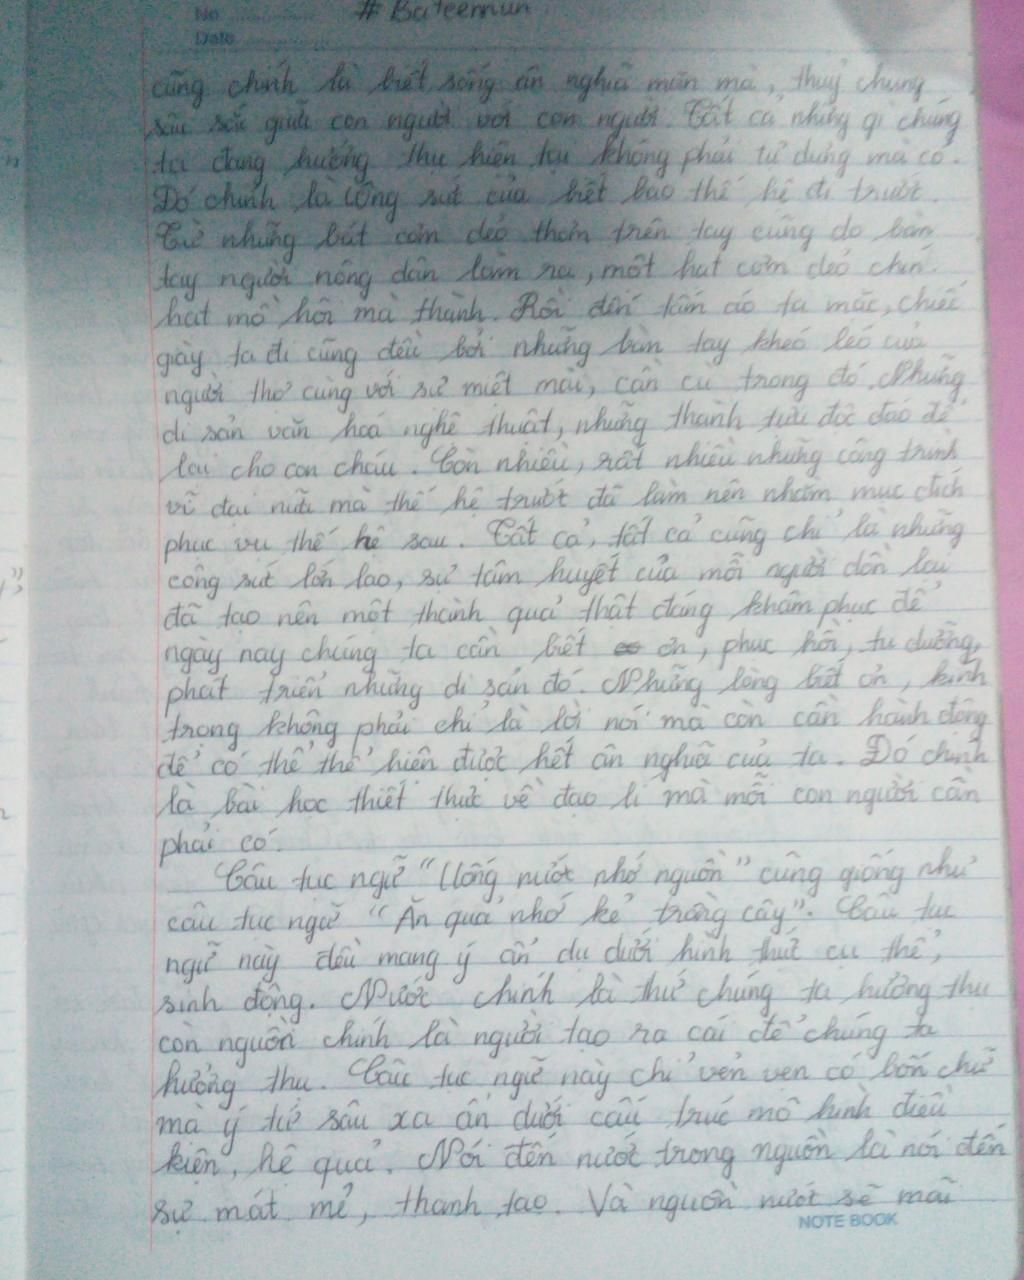 No
# Bateemun
Date
cũng chính là biết sống ân nghĩa mặn mà, thuỷ chung
sâu sắc giữa con người với con người. Tất cả những gì chúng
ta đang hưởng thụ hiện tại không phải tự dưng mà có.
Đó chính là công sức của biết bao thế hệ đi trước.
Từ những bát cơm dẻo thơm trên tay cũng do bàn
tay người nông dân làm ra, một hạt cơm dẻo chín
hạt mồ hôi mà thành. Rồi đến tấm áo ta mặc, chiếc
giày ta đi cũng đều bởi những bàn tay khéo léo của
người thợ cùng với sự miệt mài, cần cù trong đó. Những
di sản văn hoá nghệ thuật, những thành tựu độc đáo để
lại cho con cháu. Còn nhiều, rất nhiều những công trình
vĩ đại nữa mà thế hệ trước đã làm nên nhằm mục đích
phục vụ thế hệ sau. Tất cả, tất cả cũng chỉ là những
công sức lớn lao, sự tâm huyết của mỗi người dồn lại
đã tạo nên một thành quả thật đáng khâm phục để
ngày nay chúng ta cần biết ơn, phục hồi, tu dưỡng,
phát triển những di sản đó. Những lòng biết ơn, kính
trọng không phải chỉ là lời nói mà còn cần hành động
để có thể thể hiện được hết ân nghĩa của ta. Đó chính
là bài học thiết thực về đạo lí mà mỗi con người cần
phải có.
Câu tục ngữ "Uống nước nhớ nguồn" cũng giống như
câu tục ngữ "Ăn quả nhớ kẻ trồng cây". Câu tục
ngữ này đều mang ý ẩn dụ dưới hình thức cụ thể,
sinh động. Nước chính là thứ chúng ta hưởng thụ
còn nguồn chính là người tạo ra cái để chúng ta
hưởng thụ. Câu tục ngữ này chỉ vẻn vẹn có bốn chữ
mà ý tứ sâu xa ẩn dưới cấu trúc mô hình điều
kiện, hệ quả. Nói đến nước trong nguồn là nói đến
sự mát mẻ, thanh tao. Và nguồn nước sẽ mãi
NOTE BOOK